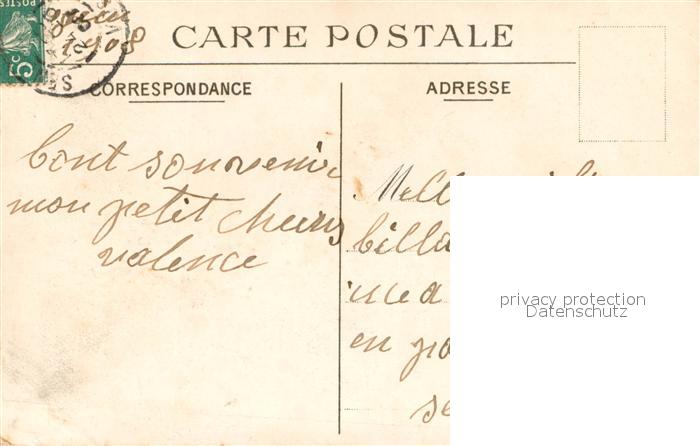 POSTES
5c
1908
CARTE POSTALE
CORRESPONDANCE
ADRESSE
bont souvenir
mon petit cheurs
valence
Mell
billa
en po
se
privacy protection
Datenschutz